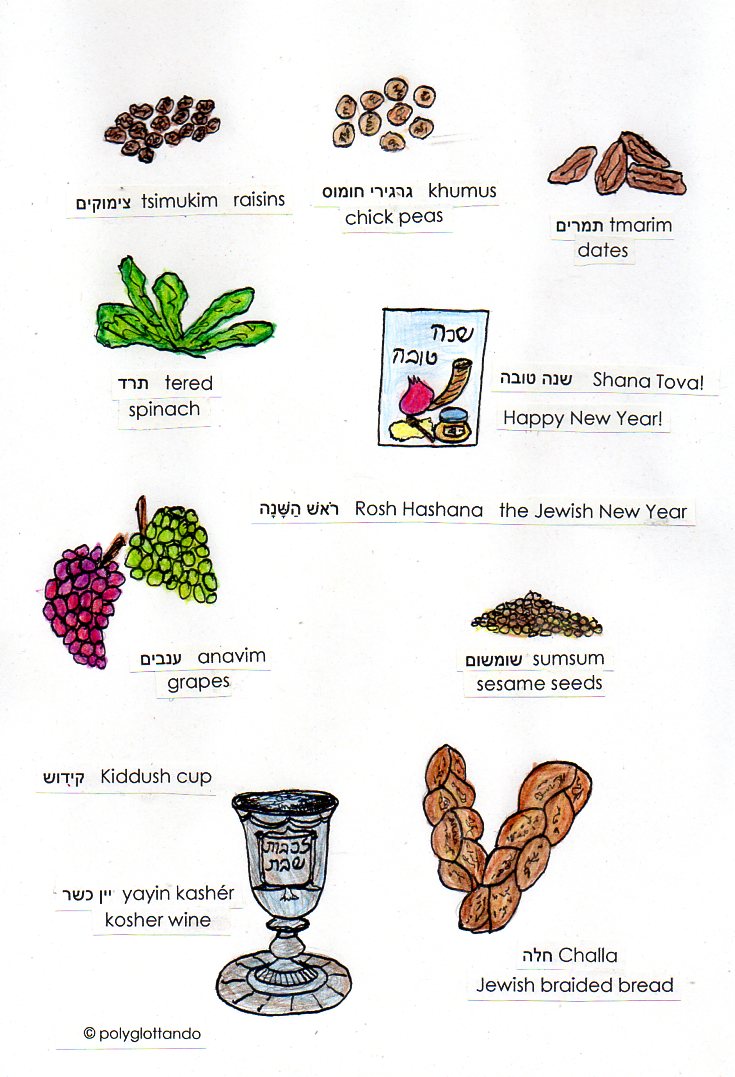 צימוקים tsimukim raisins
גרגירי חומוס khumus
chick peas
תמרים tmarim
dates
תרד tered
spinach
שנה
טובה
שנה טובה Shana Tova!
Happy New Year!
רֹאשׁ הַשָּׁנָה Rosh Hashana the Jewish New Year
ענבים anavim
grapes
שומשום sumsum
sesame seeds
קידוש Kiddush cup
לכבוד
שבת
יין כשר yayin kashér
kosher wine
חלה Challa
Jewish braided bread
© polyglottando